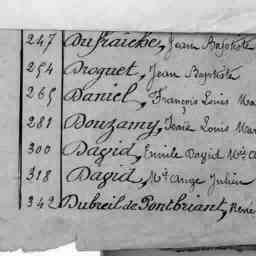 247 Dufraiche, Jean Baptiste
254 Droguet, Jean Baptiste
265 Daniel, François Louis Mar
281 Douzamy, Isaïe Louis Mar
300 David, Emile David
318 David, Mie Ange Julien
342 Dubreil de Pontbriant, René